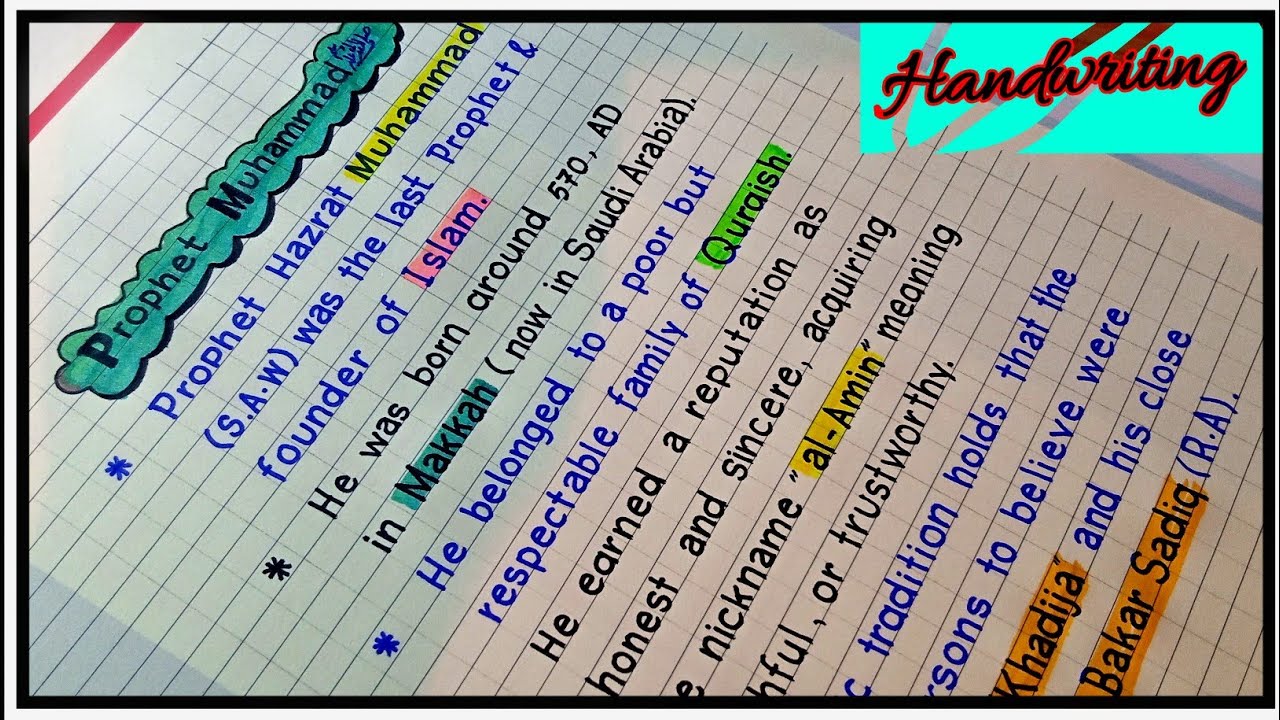 Handwriting
Prophet Muhammad ﷺ
* Prophet Hazrat Muhammad
(S.A.W) was the last Prophet &
founder of Islam.
* He was born around 570, AD
in Makkah (now in Saudi Arabia).
* He belonged to a poor but
respectable family of Quraish.
He earned a reputation as
honest and sincere, acquiring
nickname "al-Amin" meaning
hful, or trustworthy.
c tradition holds that the
rsons to believe were
"Khadija" and his close
Bakar Sadiq (R.A).